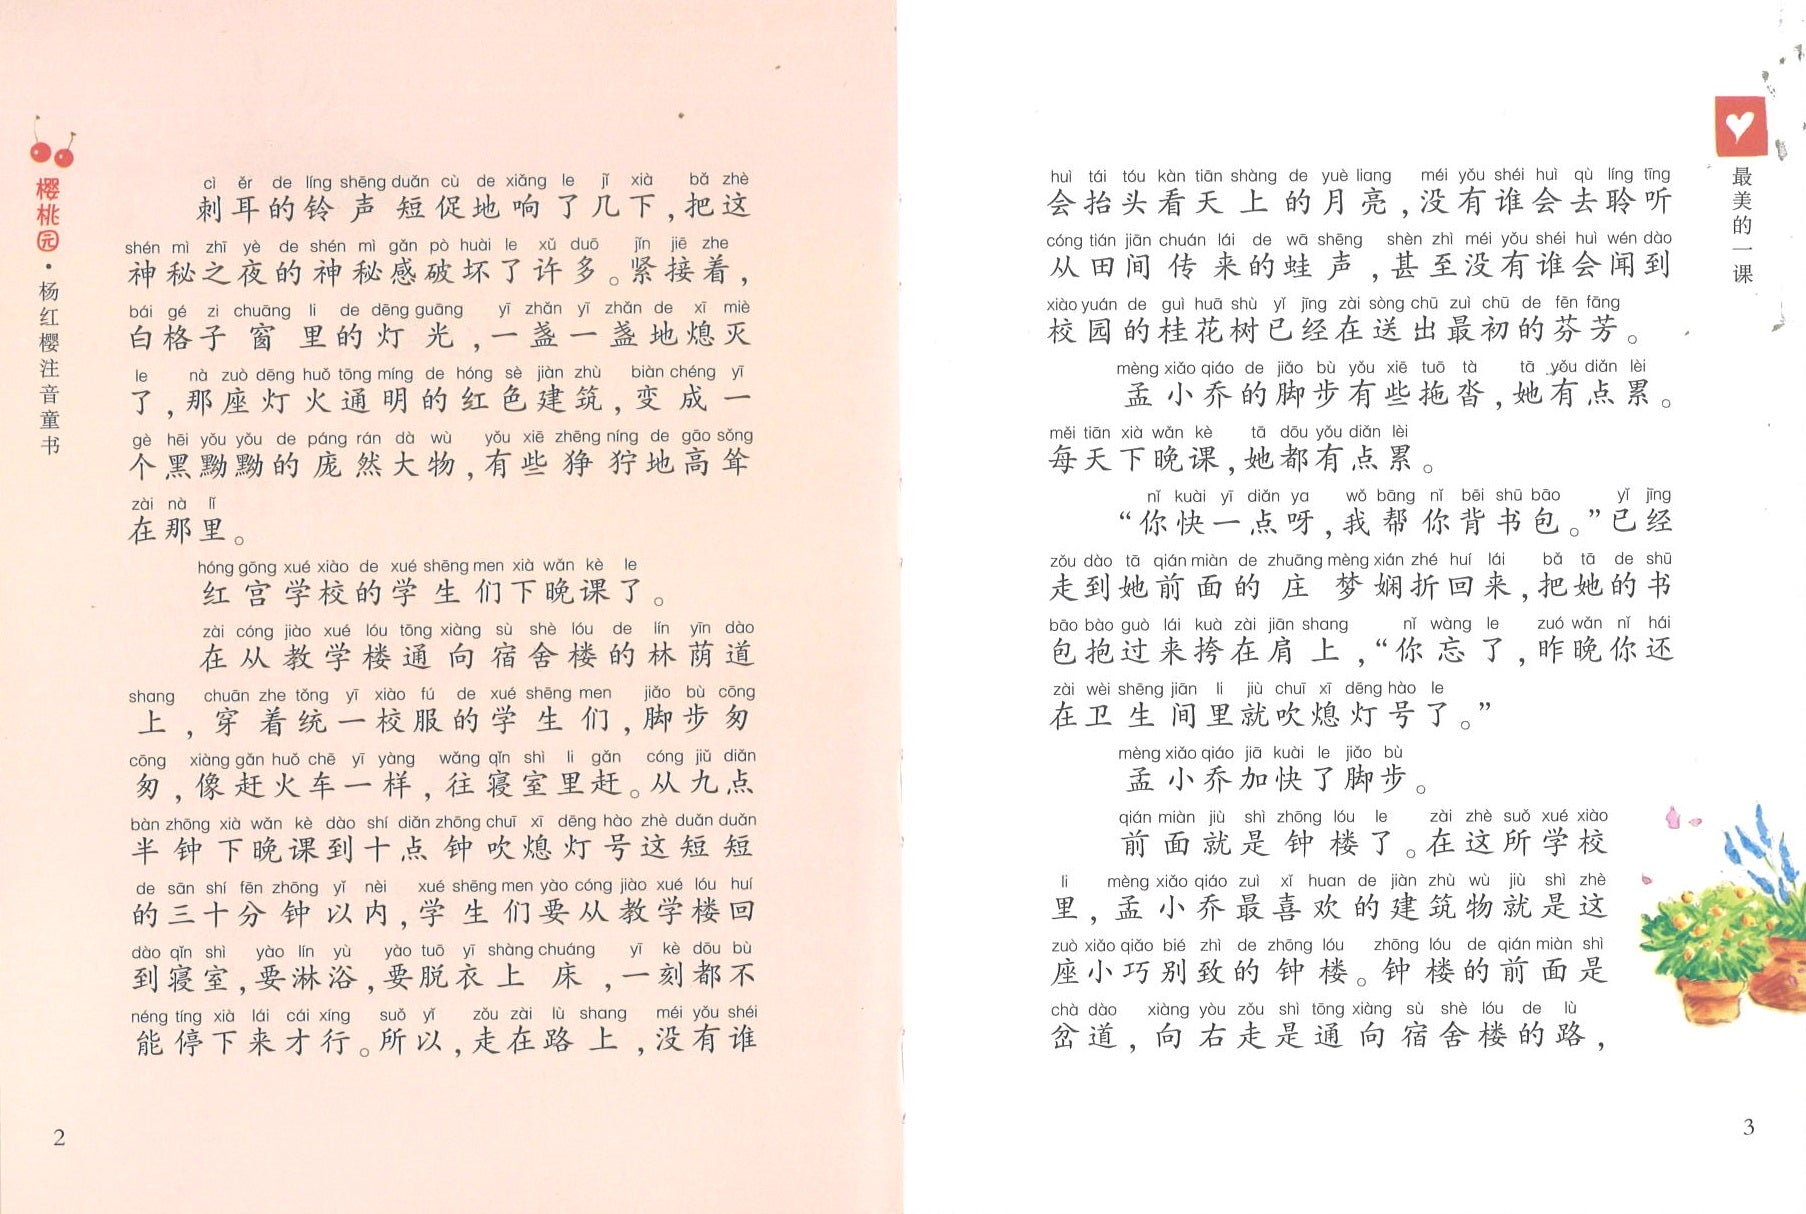 樱桃园·杨红樱注音童书
cì ěr de líng shēng duǎn cù de xiǎng le jǐ xià bǎ zhè
刺耳的铃声短促地响了几下，把这
shén mì zhī yè de shén mì gǎn pò huài le xǔ duō jǐn jiē zhe
神秘之夜的神秘感破坏了许多。紧接着，
bái gé zi chuāng li de dēng guāng yī zhǎn yī zhǎn de xī miè
白格子窗里的灯光，一盏一盏地熄灭
le nà zuò dēng huǒ tōng míng de hóng sè jiàn zhù biàn chéng yī
了，那座灯火通明的红色建筑，变成一
gè hēi yǒu yǒu de páng rán dà wù yǒu xiē zhēng níng de gāo sǒng
个黑黝黝的庞然大物，有些狰狞地高耸
zài nà lǐ
在那里。
hóng gōng xué xiào de xué shēng men xià wǎn kè le
红宫学校的学生们下晚课了。
zài cóng jiào xué lóu tōng xiàng sù shè lóu de lín yīn dào
在从教学楼通向宿舍楼的林荫道
shang chuān zhe tǒng yī xiào fú de xué shēng men jiǎo bù cōng
上，穿着统一校服的学生们，脚步匆
cōng xiàng gǎn huǒ chē yī yàng wǎng qǐn shì li gǎn cóng jiǔ diǎn
匆，像赶火车一样，往寝室里赶。从九点
bàn zhōng xià wǎn kè dào shí diǎn zhōng chuī xī dēng hào zhè duǎn duǎn
半钟下晚课到十点钟吹熄灯号这短短
de sān shí fēn zhōng yǐ nèi xué shēng men yào cóng jiào xué lóu huí
的三十分钟以内，学生们要从教学楼回
dào qǐn shì yào lín yù yào tuō yī shàng chuáng yī kè dōu bù
到寝室，要淋浴，要脱衣上床，一刻都不
néng tíng xià lái cái xíng suǒ yǐ zǒu zài lù shang méi yǒu shéi
能停下来才行。所以，走在路上，没有谁
2
最美的一课
huì tái tóu kàn tiān shàng de yuè liang méi yǒu shéi huì qù líng tīng
会抬头看天上的月亮，没有谁会去聆听
cóng tián jiān chuán lái de wā shēng shèn zhì méi yǒu shéi huì wén dào
从田间传来的蛙声，甚至没有谁会闻到
xiào yuán de guì huā shù yǐ jīng zài sòng chū zuì chū de fēn fāng
校园的桂花树已经在送出最初的芬芳。
mèng xiǎo qiáo de jiǎo bù yǒu xiē tuō tà tā yǒu diǎn lèi
孟小乔的脚步有些拖沓，她有点累。
měi tiān xià wǎn kè tā dōu yǒu diǎn lèi
每天下晚课，她都有点累。
nǐ kuài yī diǎn ya wǒ bāng nǐ bēi shū bāo yǐ jīng
“你快一点呀，我帮你背书包。”已经
zǒu dào tā qián miàn de zhuāng mèng xián zhé huí lái bǎ tā de shū
走到她前面的庄梦娴折回来，把她的书
bāo bào guò lái kuà zài jiān shang nǐ wàng le zuó wǎn nǐ hái
包抱过来挎在肩上，“你忘了，昨晚你还
zài wèi shēng jiān li jiù chuī xī dēng hào le
在卫生间里就吹熄灯号了。”
mèng xiǎo qiáo jiā kuài le jiǎo bù
孟小乔加快了脚步。
qián miàn jiù shì zhōng lóu le zài zhè suǒ xué xiào
前面就是钟楼了。在这所学校
li mèng xiǎo qiáo zuì xǐ huan de jiàn zhù wù jiù shì zhè
里，孟小乔最喜欢的建筑物就是这
zuò xiǎo qiǎo bié zhì de zhōng lóu zhōng lóu de qián miàn shì
座小巧别致的钟楼。钟楼的前面是
chà dào xiàng yòu zǒu shì tōng xiàng sù shè lóu de lù
岔道，向右走是通向宿舍楼的路，
3